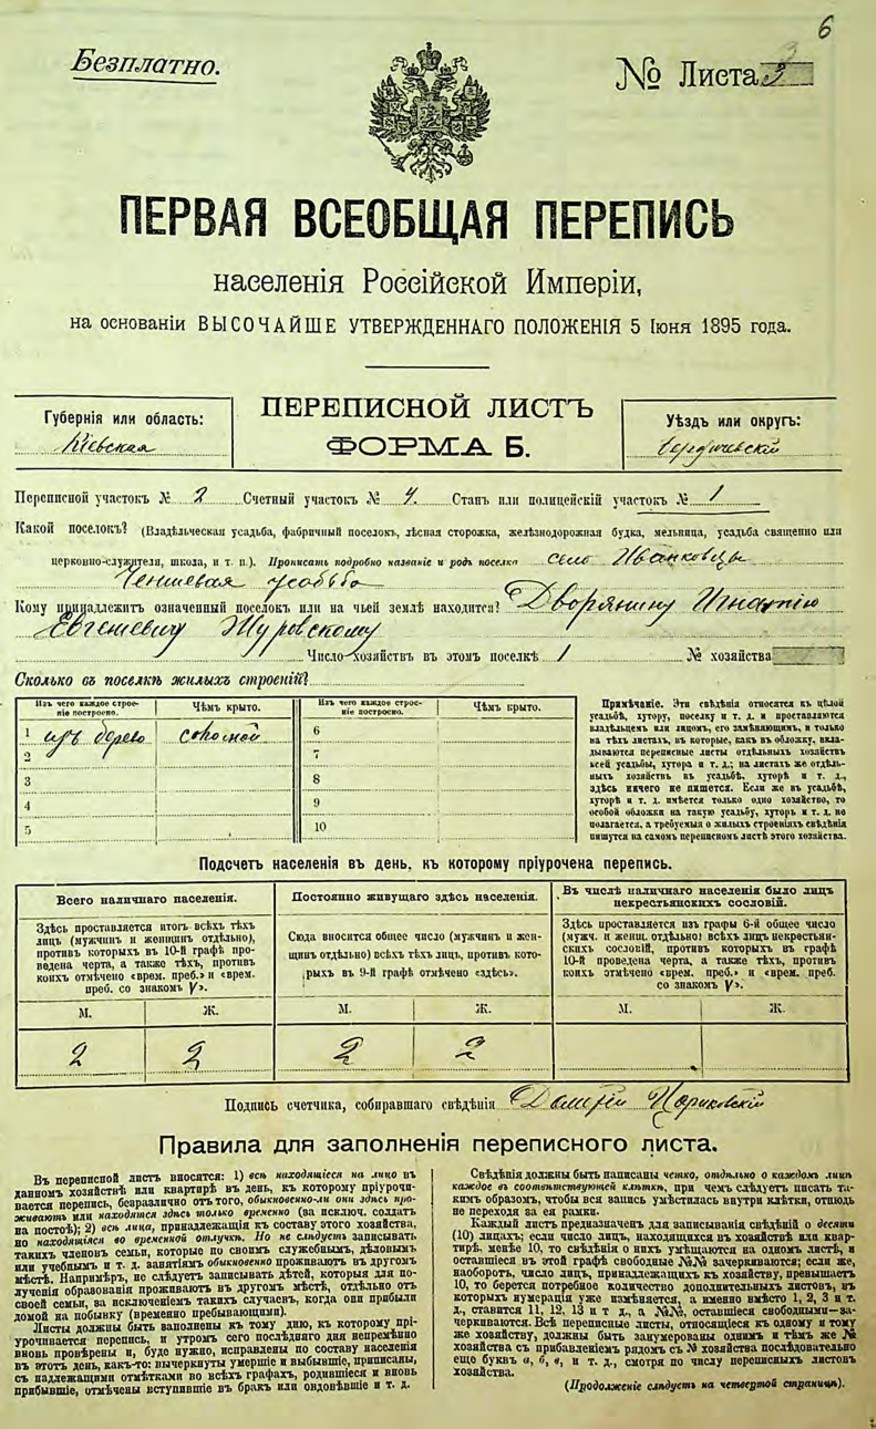 6
Безплатно.
№ Листа 3
ПЕРВАЯ ВСЕОБЩАЯ ПЕРЕПИСЬ
населенія Россійской Имперіи,
на основаніи ВЫСОЧАЙШЕ УТВЕРЖДЕННАГО ПОЛОЖЕНІЯ 5 Іюня 1895 года.
Губернія или область:
Кіевская
ПЕРЕПИСНОЙ ЛИСТЪ
ФОРМА Б.
Уѣздъ или округъ:
Бердичевскій
Переписной участокъ № 2 Счетный участокъ № 4. Станъ или полицейскій участокъ № 1
Какой поселокъ? (Владѣльческая усадьба, фабричный поселокъ, лѣсная сторожка, желѣзнодорожная будка, мельница, усадьба священно или
церковно-служителя, школа, и т. п.). Прописать подробно названіе и родъ поселка село Иванковцы
усадьба
Кому принадлежитъ означенный поселокъ или на чьей землѣ находится? Дворянину Игнатію
Евгеніевичу Журовскому
Число хозяйствъ въ этомъ поселкѣ 1 № хозяйства
Сколько въ поселкѣ жилыхъ строеній?
Изъ чего каждое строе-
ніе построено.
Чѣмъ крыто.
Изъ чего каждое строе-
ніе построено.
Чѣмъ крыто.
1 изъ дерево соломой
2
3
4
5
6
7
8
9
10
Примѣчаніе. Эти свѣдѣнія относятся къ цѣлой
усадьбѣ, хутору, поселку и т. д. и проставляются
владѣльцемъ или лицомъ, его замѣняющимъ, и только
на тѣхъ листахъ, въ которые, какъ въ обложку, вкла-
дываются переписные листы отдѣльныхъ хозяйствъ
всей усадьбы, хутора и т. д.; на листахъ же отдѣль-
ныхъ хозяйствъ въ усадьбѣ, хуторѣ и т. д.,
здѣсь ничего не пишется. Если же въ усадьбѣ,
хуторѣ и т. д. имѣется только одно хозяйство, то
особой обложки на такую усадьбу, хуторъ и т. д. не
полагается, а требуемыя о жилыхъ строеніяхъ свѣдѣнія
пишутся на самомъ переписномъ листѣ этого хозяйства.
Подсчетъ населенія въ день, къ которому пріурочена перепись.
Всего наличнаго населенія.
Здѣсь проставляется итогъ всѣхъ тѣхъ
лицъ (мужчинъ и женщинъ отдѣльно),
противъ которыхъ въ 10-й графѣ про-
ведена черта, а также тѣхъ, противъ
коихъ отмѣчено «врем. преб.» и «врем.
преб. со знакомъ V».
М. Ж.
2 2
Постоянно живущаго здѣсь населенія.
Сюда вносится общее число (мужчинъ и жен-
щинъ отдѣльно) всѣхъ тѣхъ лицъ, противъ кото-
рыхъ въ 9-й графѣ отмѣчено «здѣсь».
М. Ж.
2 2
Въ числѣ наличнаго населенія было лицъ
некрестьянскихъ сословій.
Здѣсь проставляется изъ графы 6-й общее число
(мужч. и женщ. отдѣльно) всѣхъ лицъ некрестьян-
скихъ сословій, противъ которыхъ въ графѣ
10-й проведена черта, а также тѣхъ, противъ
коихъ отмѣчено «врем. преб.» и «врем. преб.
со знакомъ V».
М. Ж.
Подпись счетчика, собиравшаго свѣдѣнія
Правила для заполненія переписного листа.
Въ переписной листъ вносятся: 1) всѣ находящіеся на лицо въ
данномъ хозяйствѣ или квартирѣ въ день, къ которому пріурочи-
вается перепись, безразлично отъ того, обыкновенно-ли они здѣсь про-
живаютъ или находятся здѣсь только временно (за исключ. солдатъ
на постоѣ); 2) всѣ лица, принадлежащія къ составу этого хозяйства,
но находящіяся во временной отлучкѣ. Но не слѣдуетъ записывать
такихъ членовъ семьи, которые по своимъ служебнымъ, дѣловымъ
или учебнымъ и т. д. занятіямъ обыкновенно проживаютъ въ другомъ
мѣстѣ. Напримѣръ, не слѣдуетъ записывать дѣтей, которыя для по-
лученія образованія проживаютъ въ другомъ мѣстѣ, отдѣльно отъ
своей семьи, за исключеніемъ такихъ случаевъ, когда они прибыли
домой на побывку (временно пребывающими).
Листы должны быть заполнены къ тому дню, къ которому прі-
урочивается перепись, и утромъ сего послѣдняго дня непремѣнно
вновь провѣрены и, буде нужно, исправлены по составу населенія
въ этотъ день, какъ-то: вычеркнуты умершіе и выбывшіе, приписаны,
съ надлежащими отмѣтками во всѣхъ графахъ, родившіеся и вновь
прибывшіе, отмѣчены вступившіе въ бракъ или овдовѣвшіе и т. д.
Свѣдѣнія должны быть написаны четко, отдѣльно о каждомъ лицѣ
каждое въ соотвѣтствующей клѣткѣ, при чемъ слѣдуетъ писать та-
кимъ образомъ, чтобы вся запись умѣстилась внутри клѣтки, отнюдь
не переходя за ея рамки.
Каждый листъ предназначенъ для записыванія свѣдѣній о десяти
(10) лицахъ; если число лицъ, находящихся въ хозяйствѣ или квар-
тирѣ, менѣе 10, то свѣдѣнія о нихъ умѣщаются на одномъ листѣ, и
оставшіеся въ этой графѣ свободные №№ зачеркиваются; если же,
наоборотъ, число лицъ, принадлежащихъ къ хозяйству, превышаетъ
10, то берется потребное количество дополнительныхъ листовъ, въ
которыхъ нумерація уже измѣняется, а именно вмѣсто 1, 2, 3 и т.
д., ставится 11, 12, 13 и т. д., а №№, оставшіеся свободными—за-
черкиваются. Всѣ переписные листы, относящіеся къ одному и тому
же хозяйству, должны быть занумерованы однимъ и тѣмъ же №
хозяйства съ прибавленіемъ рядомъ съ № хозяйства послѣдовательно
еще буквъ а, б, в, и т. д., смотря по числу переписныхъ листовъ
хозяйства.
(Продолженіе слѣдуетъ на четвертой страницѣ).